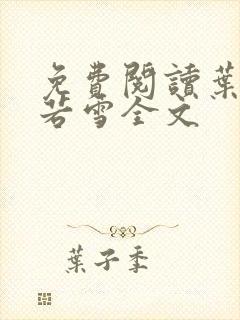 免費閱讀葉
若雪全文
葉子季